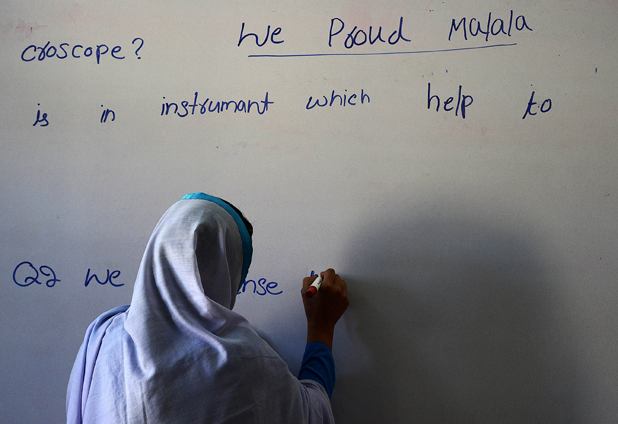 We Proud Malala
croscope?
is in instrumant which help to
Q2 We